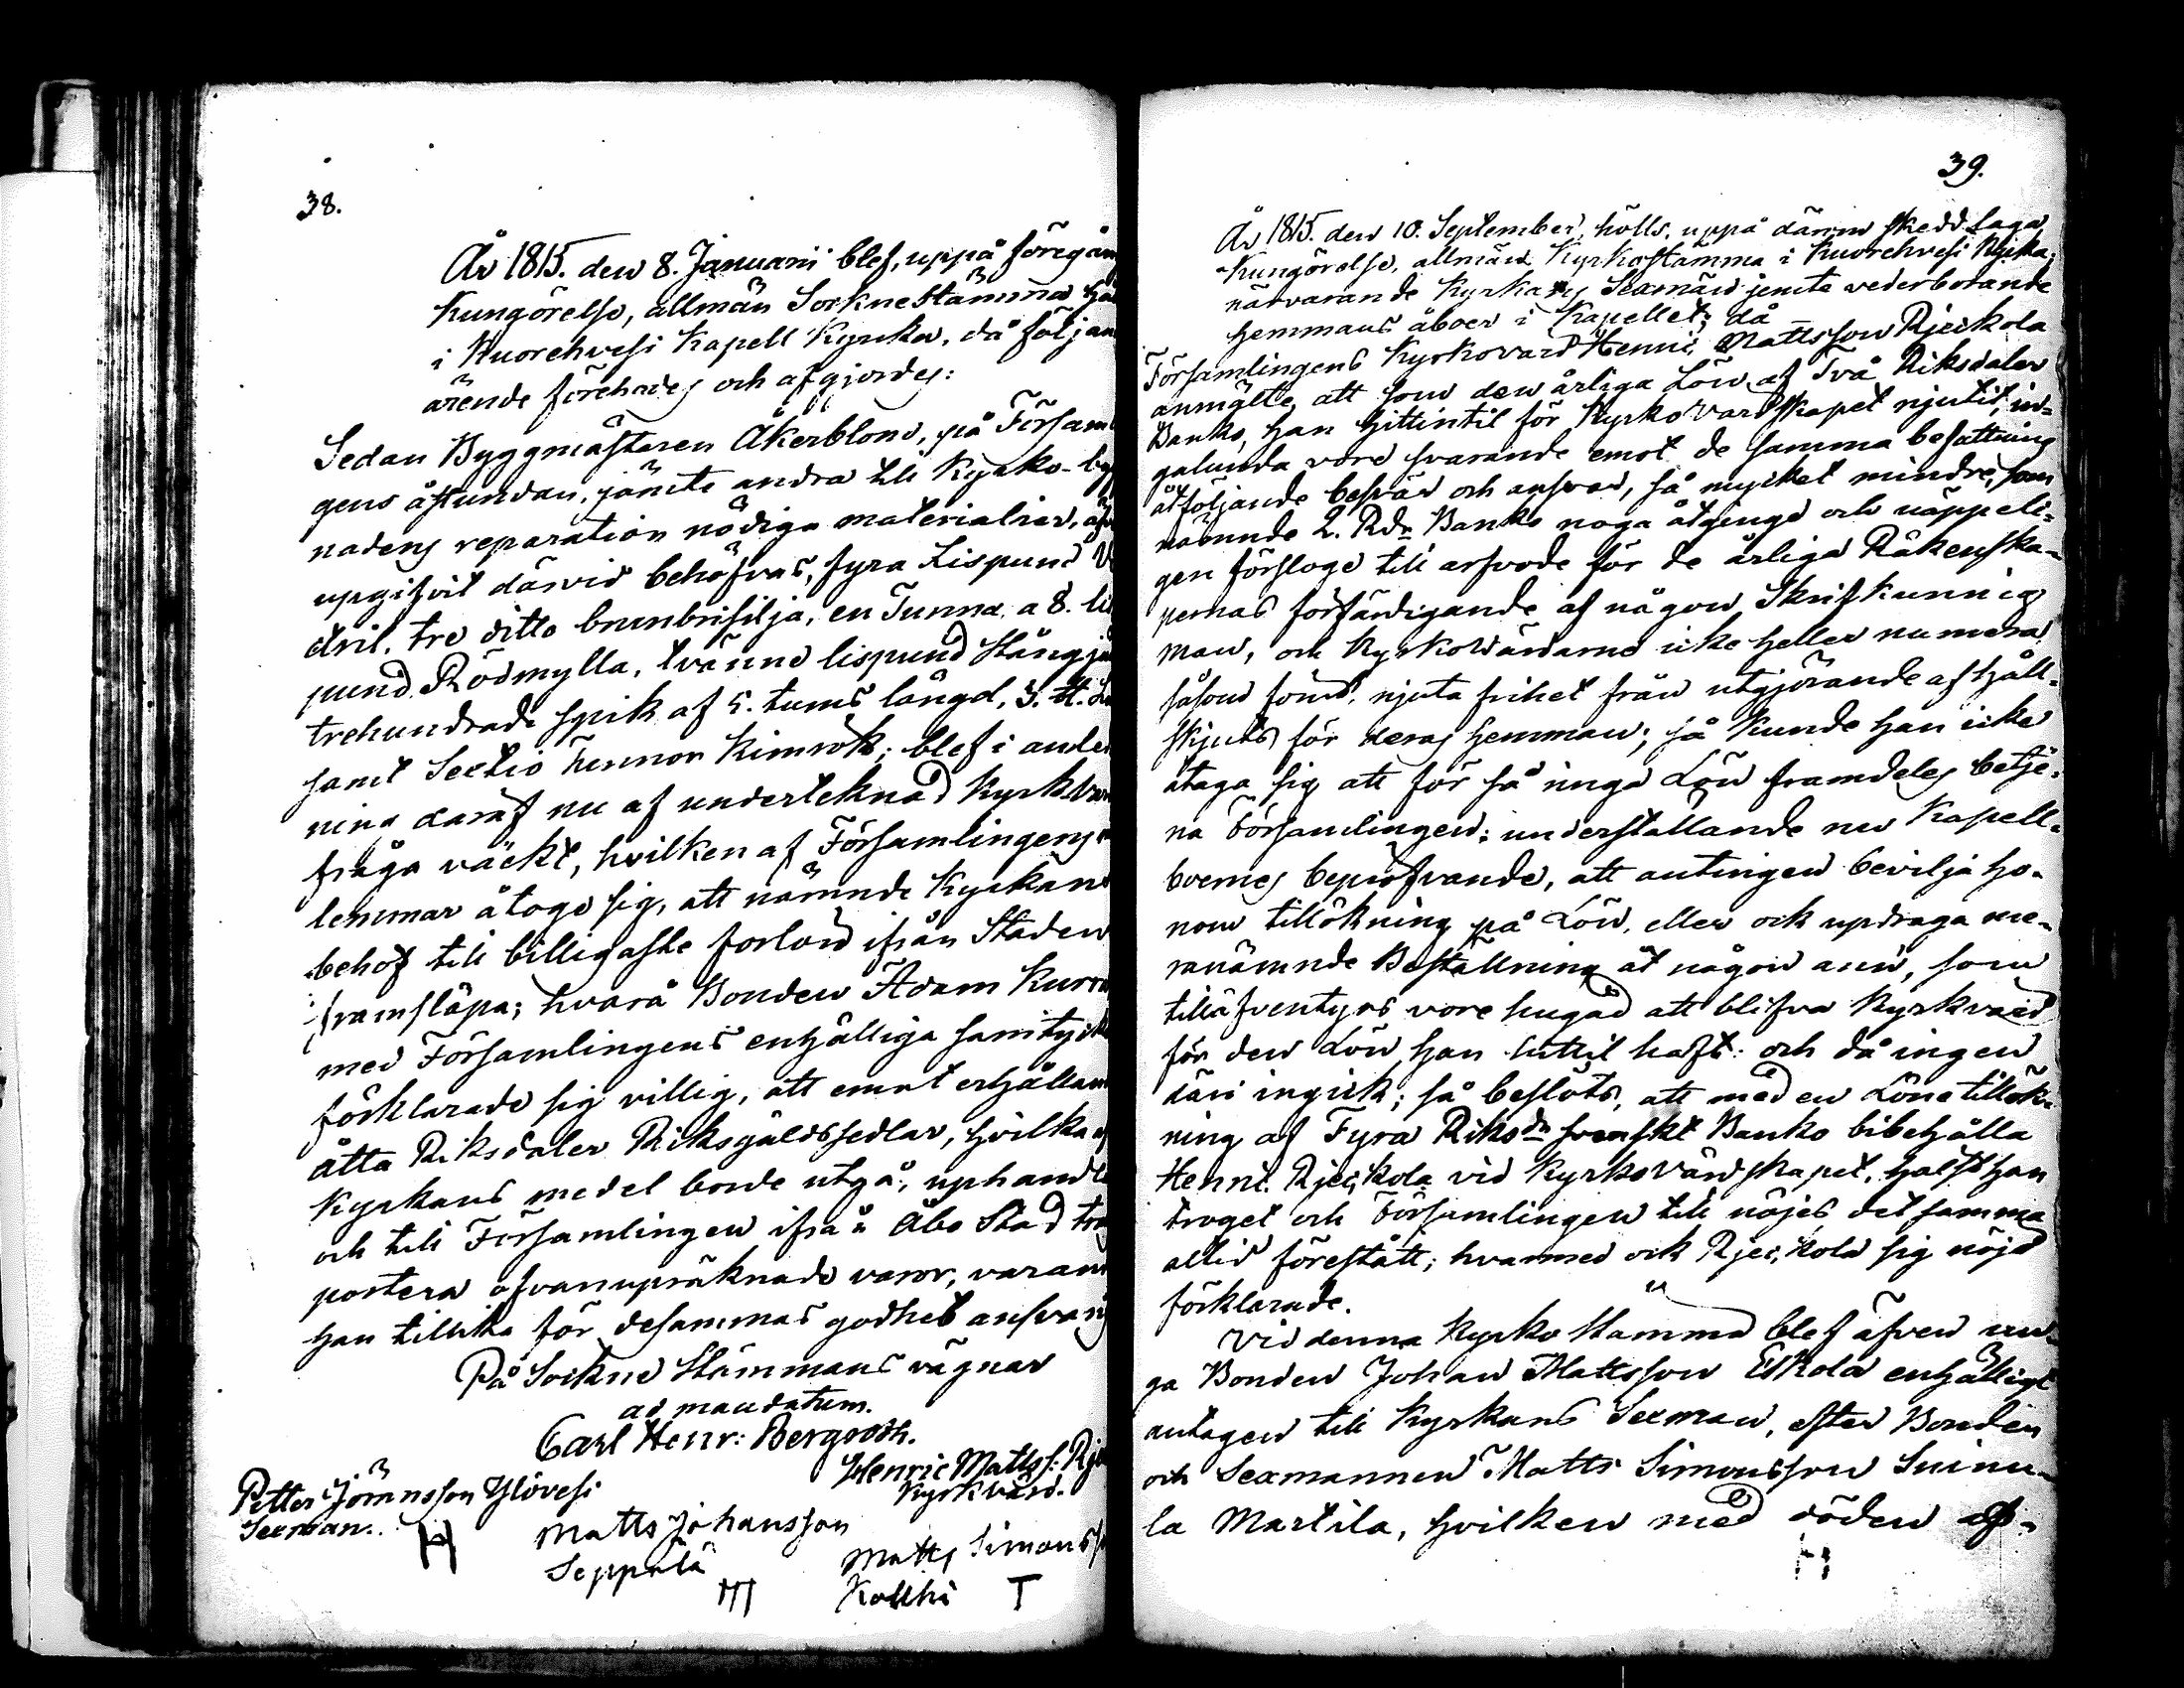 38.
År 1815. den 8. Januarii blef, uppå föregån
Kungörelse, allmän Sockne Stämma hål
i Kuorehvesi Kapell Kyrka, då följan
ärende förehades och afgjordes:
Sedan Byggmästaren Åkerblom, på Församl
gens åstundan, jämte andra till Kyrko-byg
nadens reparation nödiga materialier, äfv
upgifvit därvid behöfvas, fyra Lispund
dril, tre ditto brunbrisilja, en Tunna a 8. lis
pund Rödmylla, tvänne lispund Stångjär
trehundrade spik af 5. tums längd, 3. #.
samt Sextio kimrök; blef i anled
ning däraf nu af underteknad Kyrkovär
fråga väckt, hvilken af Församlingens
lemmar åtoge sig, att nämnde Kyrkans
behof till billigaste forlön ifrån Staden
framsläpa; hvarå Bonden Adam Kurr
med Församlingens enhälliga samtycke
förklarade sig villig, att emot erhållan
åtta Riksdaler Riksgäldssedlar, hvilka af
Kyrkans medel borde utgå, uphandla
och till Församlingen ifrån Åbo Stad tra
portera ofvanupräknade varor, varan
han tillika för desammas godhet ansvarig
På Sockne Stämmans vägnar
ad mandatum.
Carl Henr: Bergroth.
Henric Mattss: Rje
Kyrkvärd.
Petter Jönnsson Ylövesi
Sexman. H
Matts Johansson
Seppälä
Matts Simonss
Kollhi T
39.
År 1815. den 10. September, hölls, uppå därom skedd laga
Kungörelse, allmän Kyrkostämma i Kuorehvesi Kyrka,
närvarande Kyrkans Sexmän jemte vederbörande
hemmans åboer i Kapellet; då
Församlingens Kyrkovärd Henric Mattsson Rjeckola
anmälte, att som den årliga Lön af Två Riksdaler
Banko, han hittintil för Kyrko Värdskapet njutit, in-
galunda vore svarande emot de samma befattning
åtföljande besvär och ansvar, så mycket mindre, som
nämnde 2. Rdr Banko noga åtginge och näppeli-
gen försloge till arfvode för de årliga Räkenska-
pernas förfärdigande af någon Skrifkunnig
man, och Kyrkovärdarne icke heller numera
såsom förut, njuta frihet från utgjörande af Håll-
skjuts för deras hemman; så kunde han icke
åtaga sig att för så ringa Lön framdeles betje-
na Församlingen; understållande nu Kapell-
boernes bepröfvande, att antingen bevilja ho-
nom tillökning på Lön, eller ock updraga me-
ranämnde Beställning åt någon ann, som
tilläfventyrs vore hugad att blifva Kyrkvärd
för den Lön han hittil haft: och då ingen
däri ingick; så beslöts, att med en Lönetillök-
ning af Fyra Riksdr svenskt Banko bibehålla
Henric Rjeckola vid Kyrko Värdskapet, hälst han
troget och Församlingen till nöjes det samma
altid förestått; hvarmed ock Rjeckola sig nöjd
förklarade.
Vid denna Kyrko Stämma blef äfven un-
ga Bonden Johan Mattsson Eskola enhälligt
antagen till Kyrkans Sexman, efter Bonden
och Sexmannen Matts Simonsson Suinu-
la Martila, hvilken med döden af-
H